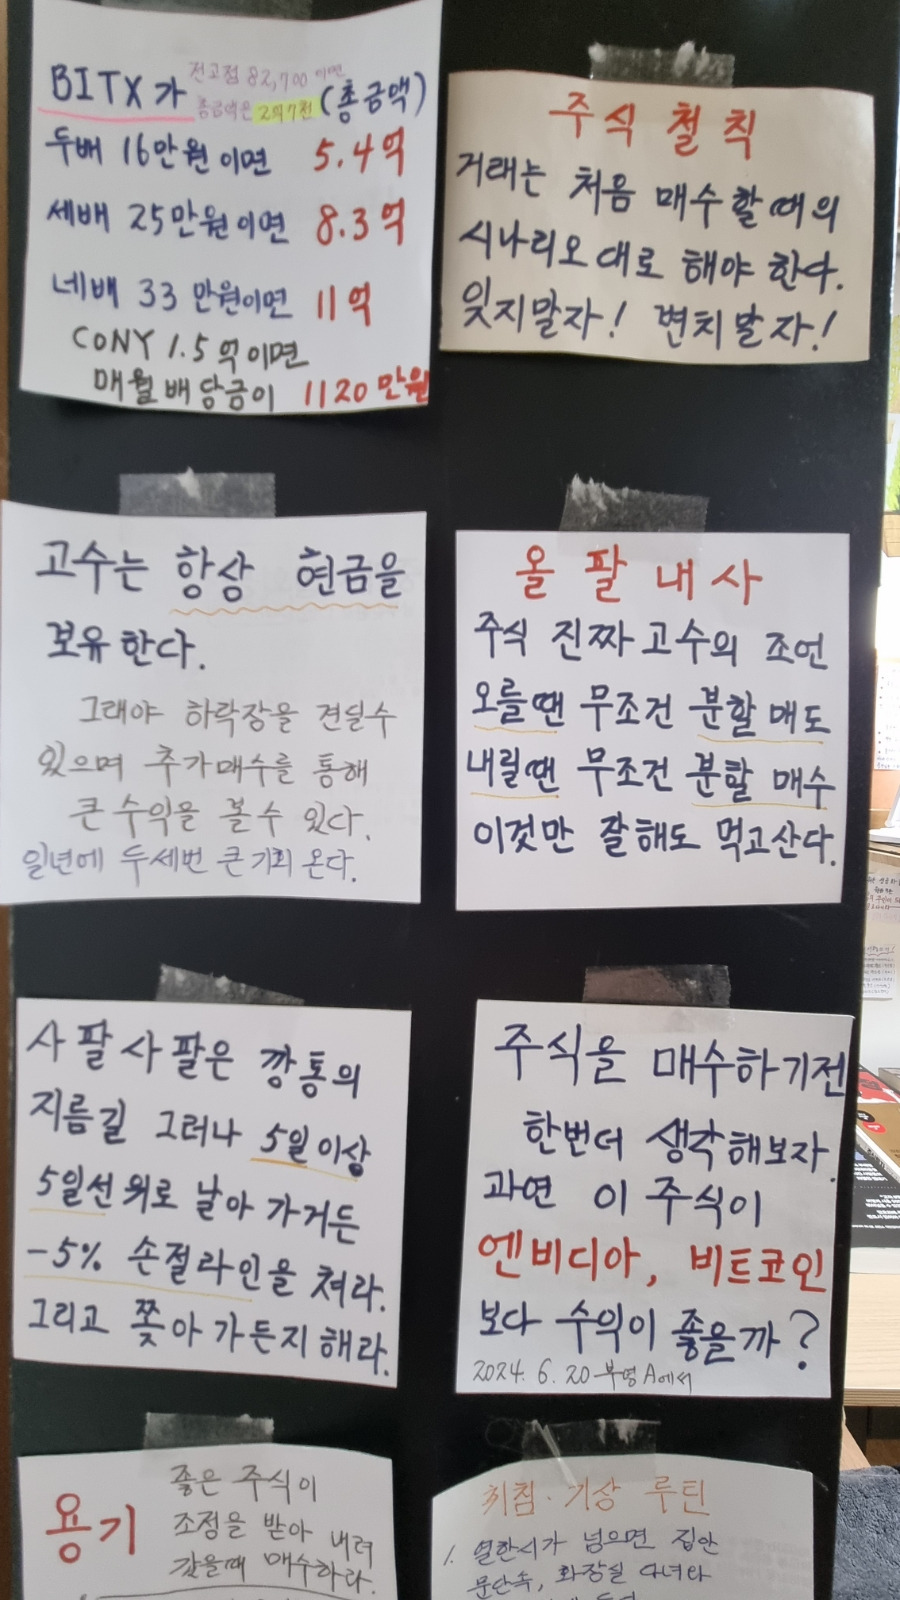 BITX가 전고점 82,700 이면
총금액은 2억7천 (총금액)
두배 16만원이면 5.4억
세배 25만원이면 8.3억
네배 33만원이면 11억
CONY 1.5억이면
매월배당금이 1120만원
주식 철칙
거래는 처음 매수할때의
시나리오대로 해야 한다.
잊지말자! 변치말자!
고수는 항상 현금을
보유한다.
그래야 하락장을 견딜수
있으며 추가매수를 통해
큰 수익을 볼수 있다.
일년에 두세번 큰기회 온다.
올 팔 내 사
주식 진짜고수의 조언
오를땐 무조건 분할매도
내릴땐 무조건 분할 매수
이것만 잘해도 먹고산다.
사팔사팔은 깡통의
지름길 그러나 5일이상
5일선위로 날아가거든
-5% 손절라인을 쳐라.
그리고 쫓아가든지해라.
주식을 매수하기전
한번더 생각해보자
과연 이 주식이
엔비디아, 비트코인
보다 수익이 좋을까?
2024. 6. 20 부영A에서
용기
좋은 주식이
조정을 받아 내려
갔을때 매수하라.
취침·기상 루틴
1. 열한시가 넘으면 집안
문단속, 화장실 다녀와